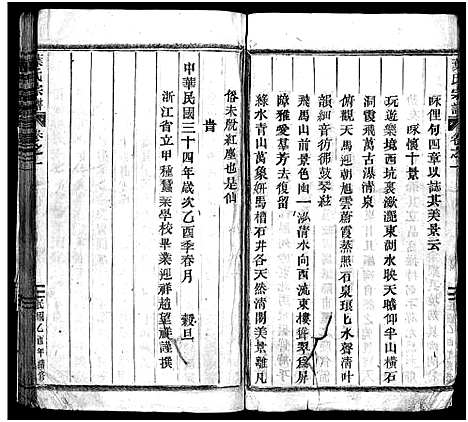 咏俚句四章以誌其美景云
咏懷十景
玩遊樂境西坑裏瀲灔東湖水映天曉仰半山橫石
洞霞飛萬古瀑清泉
俯觀天馬迎朝旭雲蔚霞蒸照石泉琅匕水聲清叶
韻細音彷彿鼓琴絃
飛馬山前景色幽一泓清水向西流東樓鶯鳥屏
嶂雅愛羣芳去復留
綠水青山萬象妍馬槽石井各天然清閒美景離凡
俗未脫紅塵也是仙
旹
中華民國三十四年歲次乙酉季春月 穀旦
浙江省立甲種蠶業學校畢業迎祥趙望祥謹撰
葉氏宗譜 卷之一
葉氏宗譜 卷之一
民國乙酉年續修